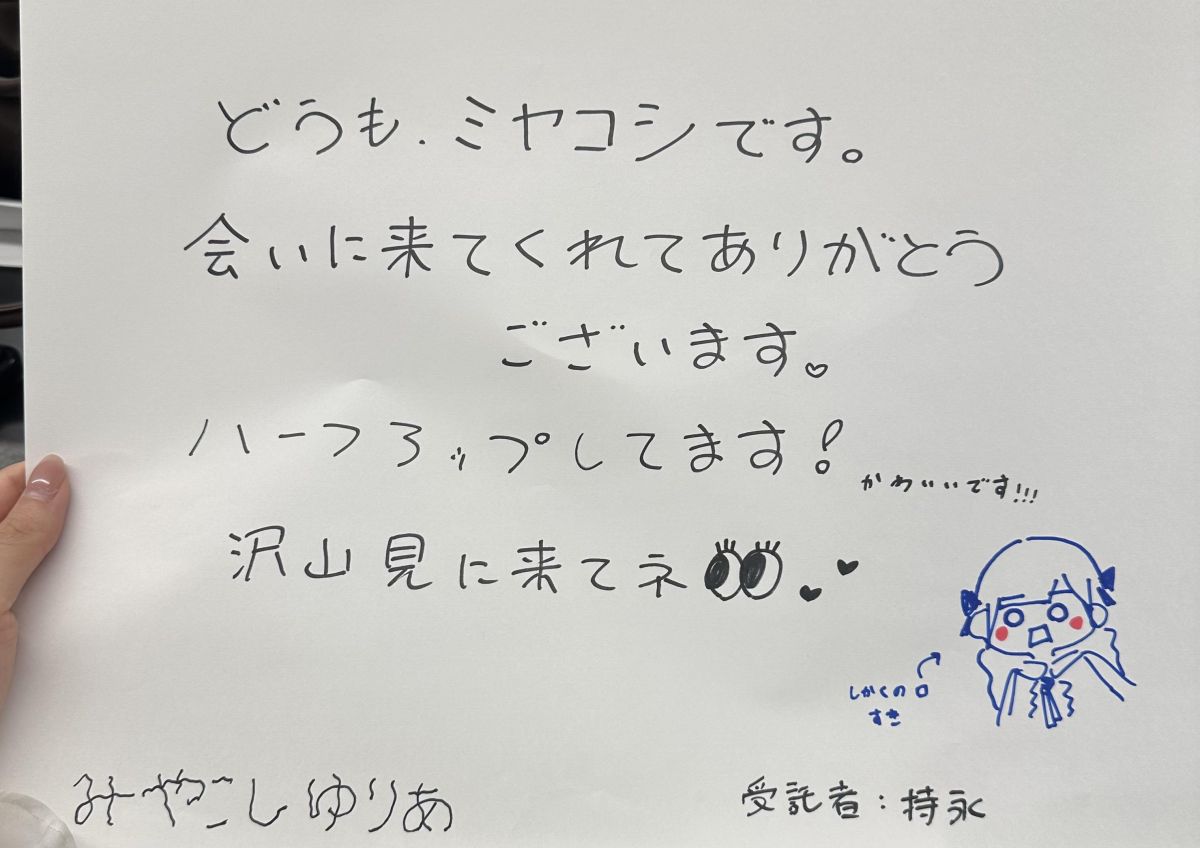 どうも、ミヤコシです。
会いに来てくれてありがとう
ございます♡
ハーフうップしてます!
かわいいです!!!
沢山見に来てネ👀♥♥
しかくの口
すき
みーやこしゆりあ
受託者:持永